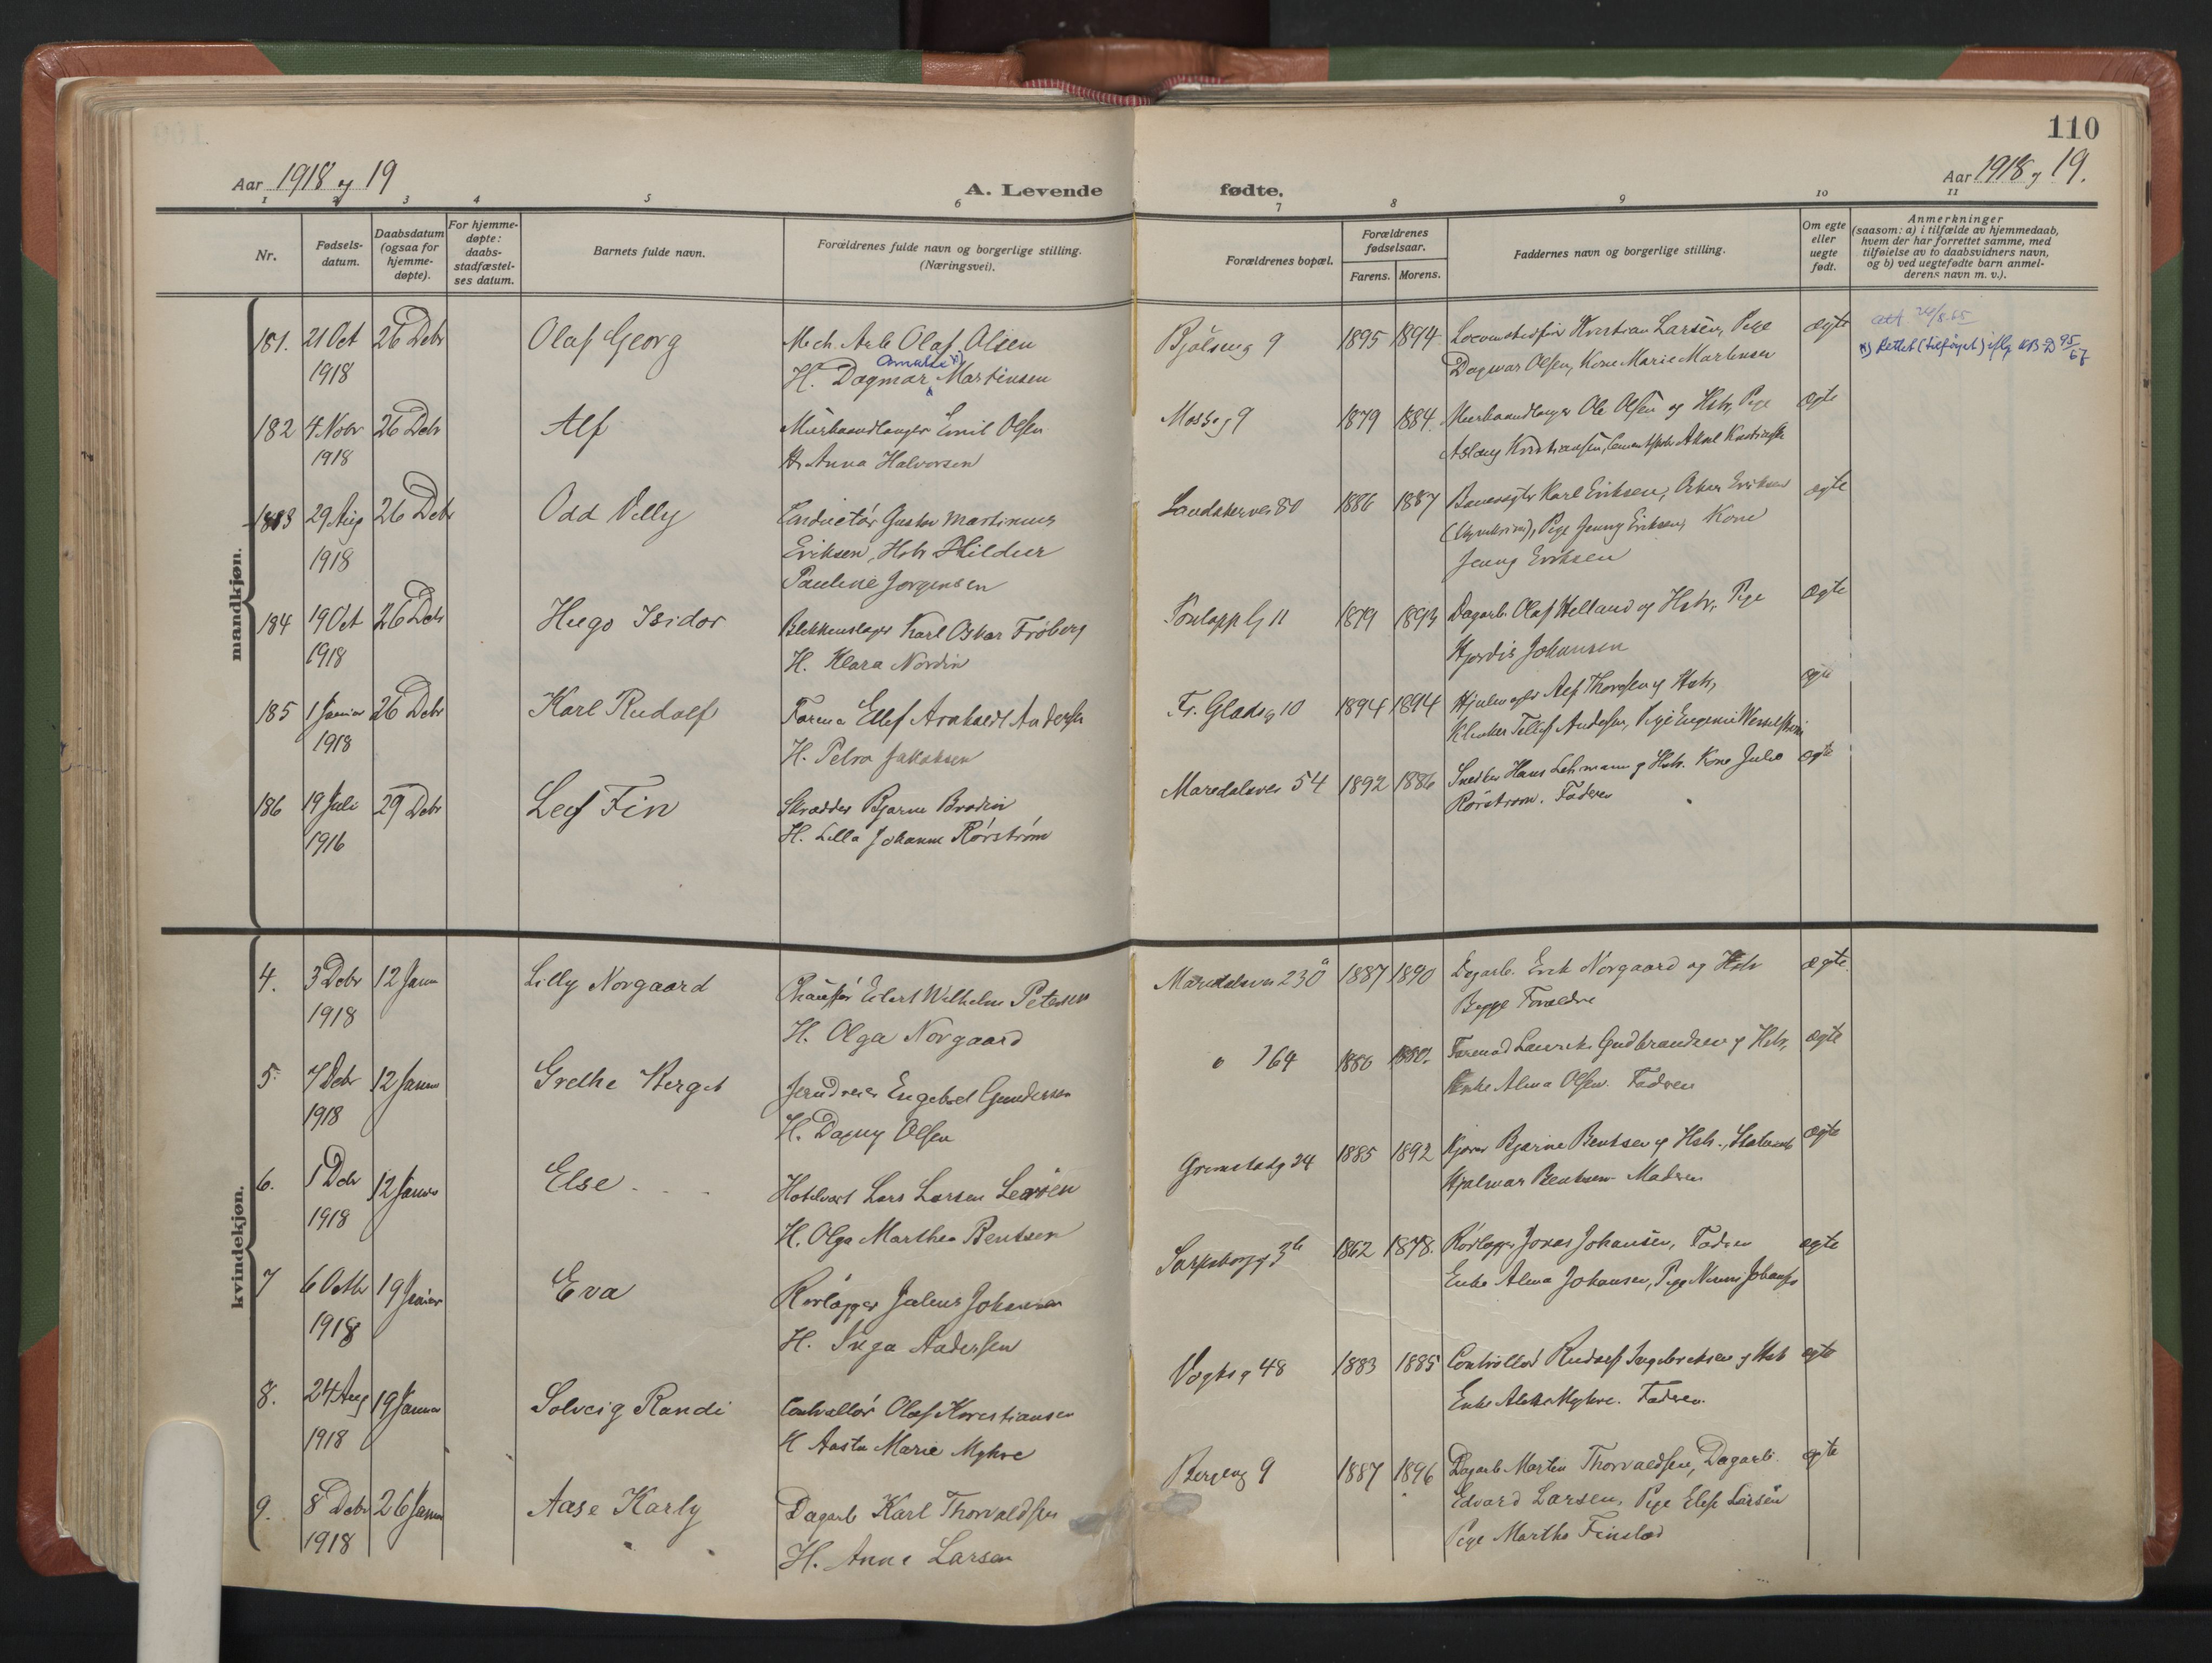 110
Aar 1918 og 19
A. Levende fødte.
Aar 1918 og 19.
1 2 3 4 5 6 7 8 9 10 11
Nr.
Fødsels-
datum.
Daabsdatum
(ogsaa for
hjemme-
døpte).
For hjemme-
døpte:
daabs-
stadfæstel-
ses datum.
Barnets fulde navn.
Forældrenes fulde navn og borgerlige stilling.
(Næringsvei).
Forældrenes bopæl.
Forældrenes
fødselsaar.
Farens. Morens.
Faddernes navn og borgerlige stilling.
Om egte
eller
uegte
født.
Anmerkninger
(saasom: a) i tilfælde av hjemmedaab,
hvem der har forrettet samme, med
tilføielse av to daabsvidners navn,
og b) ved uegtefødte barn anmel-
derens navn m. v.).
mandkjøn.
181. 21 Oct 26 Debr Olaf Georg Mech. Arb Olaf Olsen Bjølseng 9 1895 1894 Kristian Larsen, Pige ægte
1918 H. Dagmar Amalie x) Martinsen Dagmar Olsen, Kone Marie Martensen
x) Rettet (tilføyet) iflg KB D 95/67
182 4 Nobr 26 Debr Alf Murhaandlanger Emil Olsen Mosseg 9 1879 1884 Murhaandlanger Ole Olsen og Hstr, Pige ægte
1918 H. Anna Halvorsen Aslaug Kristiansen,
183 29 Aug 26 Debr Odd Villy Conductør Gustav Martinius 80 1886 1887 Karl Eriksen, Oskar Eriksen ægte
1918 Eriksen, Hstr Hildur Pige Jenny Eriksen, Kone
Pauline Jørgensen Jenny Eriksen
184 19 Oct 26 Debr Hugo Isidor Blikkenslager Karl Oskar Frøberg 11 1879 1893 Dagarb. Olaf Helland og Hstr, Pige ægte
1918 H. Klara Nordin Hjørdis Johansen
185 1 Januar 26 Debr Karl Rudolf Ellef Andersen Fr. Gladsg 10 1894 1894 Alf Thorsen og Hstr, ægte
1918 H. Petra Jakobsen Andersen, Pige Eugenie
186 19 Juli 29 Debr Leif Fin Skrædder Bjarne Brodin Maredalsvei 54 1892 1886 Snedker Hans Lehmann og Hstr. Kone Julie ægte
1916 H. Lilla Johanne Rørstrøm Rørstrøm. Faderen
kvindekjøn.
4. 3 Debr 12 Januar Lilly Norgaard Chauffør Eilert Wilhelm Petersen Maredalsvei 230 1887 1890 Dagarb. Erik Norgaard og Hstr ægte
1918 H. Olga Norgaard Begge Forældre
5. 7 Debr 12 Januar Grethe Berget Engebret Gundersen " 164 1886 Formand Laurits Gudbrandsen og Hstr, ægte
1918 H. Dagny Olsen Enke Alma Olsen. Faderen
6. 1 Debr 12 Januar Else Lars Larsen Grimstadg 24 1885 1892 Bjarne Bentsen og Hstr., ægte
1918 H. Olga Marthea Bentsen Hjalmar Bentsen Moderen
7 6 Octbr 19 Januar Eva Rørlægger Julius Johansen Sarpsborgg 3b 1862 1878. Rørlægger Jonas Johansen, Faderen ægte
1918 H. Inga Andersen Enke Alma Johansen, Pige Johansen
8. 24 Aug 19 Januar Solveig Randi Controllør Olaf Kristiansen Vogtsg 48 1883 1885 Controllør Rudolf Ingebretsen og Hstr ægte
1918 H Aasta Marie Myhre Enke Myhre. Faderen.
9. 8 Debr 26 Januar Aase Karly Dagarb Karl Thorvaldsen Bergeng 9 1887 1896 Dagarb Martin Thorvaldsen, Dagarb. ægte
1918 H. Anne Larsen Edvard Larsen, Pige Else Larsen
Pige Martha Finstad